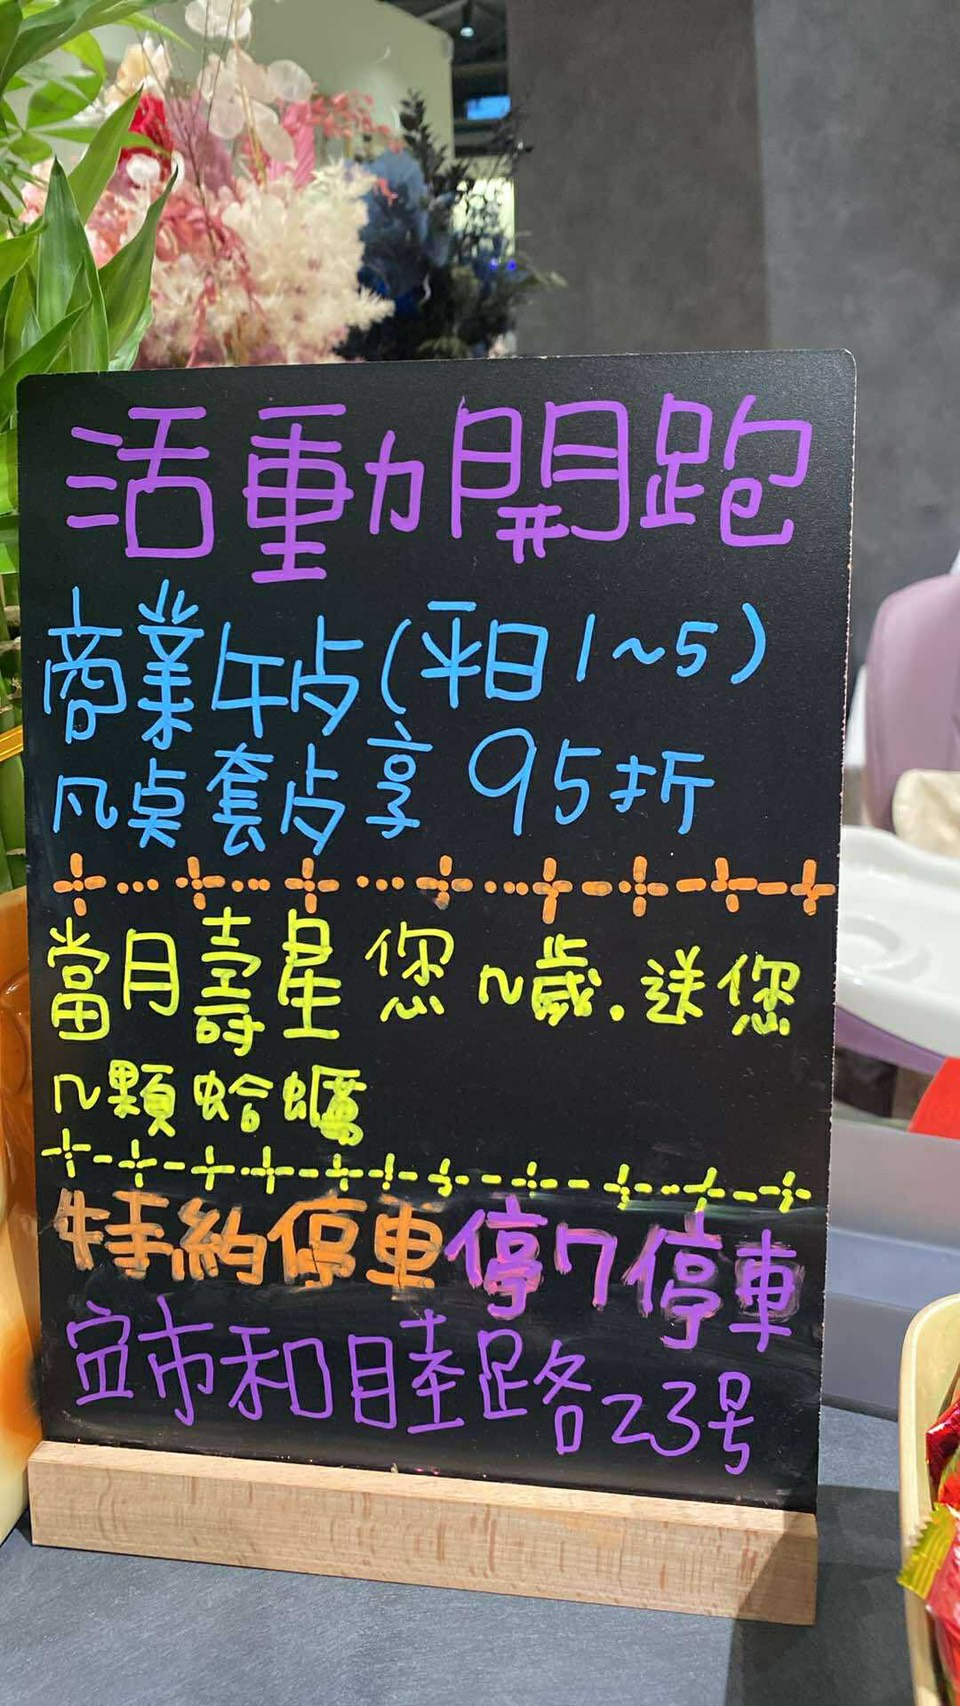 活動開跑
商業午点(平日1~5)
凡桌套点享95折
當月壽星您几歲.送您
几顆蛤蠣
特約停車停7停車
宜市和睦路23号